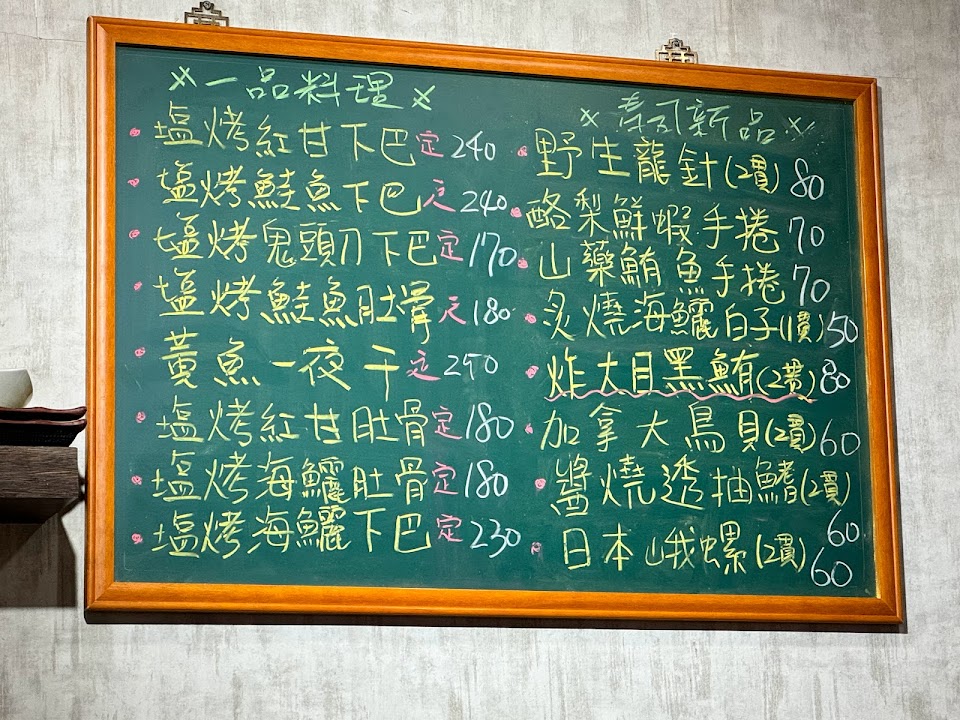 ×一品料理×
塩烤紅甘下巴定240
塩烤鮭魚下巴定240
塩烤鬼頭刀下巴定170
塩烤鮭魚肚骨定180
黃魚一夜干定250
塩烤紅甘肚骨定180
塩烤海鱺肚骨定180
塩烤海鱺下巴定230
×壽司新品×
野生龍針(2貫)80
酪梨鮮蝦手捲70
山藥鮪魚手捲70
炙燒海鱺白子(1貫)50
炸大目黑鮪(2貫)80
加拿大鳥貝(2貫)60
醬燒透抽鰭(2貫)
60
日本峨螺(2貫)60